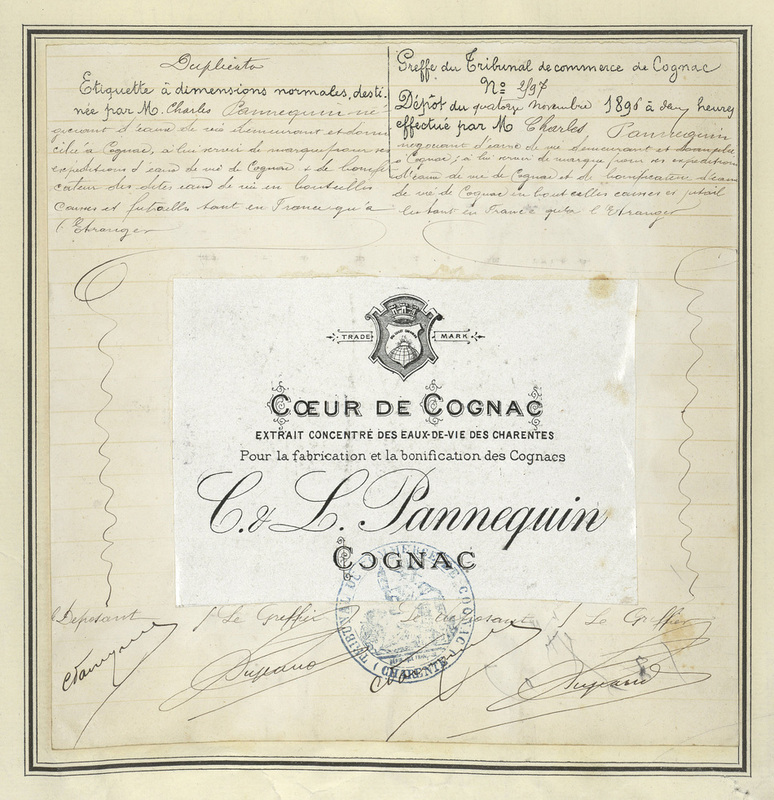 Duplicata
Etiquette à dimensions normales, desti-
née par M. Charles Pannequin né-
gociant d'eaux de vie demeurant et domi
cilié à Cognac, à lui servir de marque pour ses
expéditions d'eaux de vie de Cognac & de bonifi
cateur des dites eaux de vie en bouteilles
Caisses et futailles tant en France qu'à
l'Etranger
Greffe du Tribunal de commerce de Cognac
No 2/97
Dépôt du quatorze novembre 1896 à heures
effectué par M Charles, Pannequin
négociant d'eaux de vie demeurant et
à Cognac, à lui servir de marque pour ses expéditions
d'eaux de vie de Cognac et de bonificateur d'eaux
de vie de Cognac en bouteilles caisses et futail
les tant en France qu'à l'Etranger
TRADE MARK
CŒUR DE COGNAC
EXTRAIT CONCENTRÉ DES EAUX-DE-VIE DES CHARENTES
Pour la fabrication et la bonification des Cognacs
C. & L. Pannequin
COGNAC
TRIBUNAL DE COMMERCE DE COGNAC
(CHARENTE)
Déposant / Le Greffier Le Déposant / Le Greffier